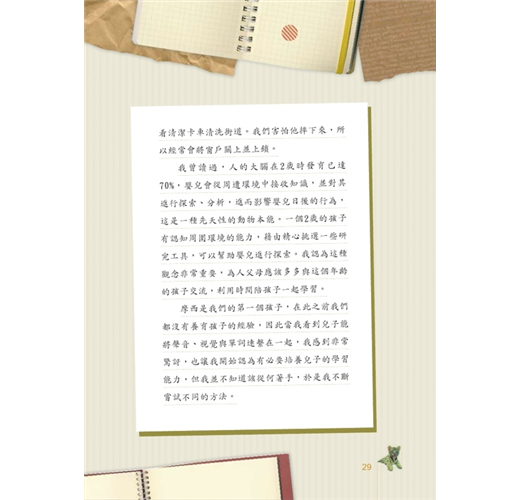 看清潔卡車清洗街道。我們害怕他摔下來，所
以經常會將窗戶關上並上鎖。
我曾讀過，人的大腦在2歲時發育已達
70%，嬰兒會從周遭環境中接收知識，並對其
進行探索、分析，進而影響嬰兒日後的行為，
這是一種先天性的動物本能。一個2歲的孩子
有認知周圍環境的能力，藉由精心挑選一些研
究工具，可以幫助嬰兒進行探索。我認為這種
觀念非常重要，為人父母應該多多與這個年齡
的孩子交流，利用時間陪孩子一起學習。
摩西是我們的第一個孩子，在此之前我們
都沒有養育孩子的經驗，因此當我看到兒子能
將聲音、視覺與單詞連繫在一起，我感到非常
驚訝，也讓我開始認為有必要培養兒子的學習
能力，但我並不知道該從何著手，於是我不斷
嘗試不同的方法。
29